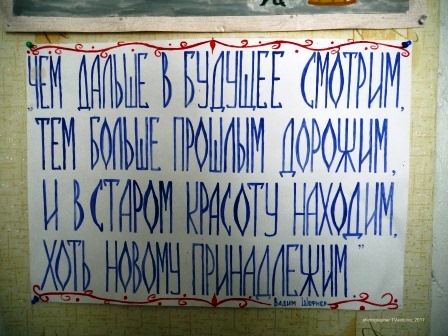 „ЧЕМ ДАЛЬШЕ В БУДУЩЕЕ СМОТРИМ,
ТЕМ БОЛЬШЕ ПРОШЛЫМ ДОРОЖИМ,
И В СТАРОМ КРАСОТУ НАХОДИМ,
ХОТЬ НОВОМУ ПРИНАДЛЕЖИМ."
Вадим Шефнер